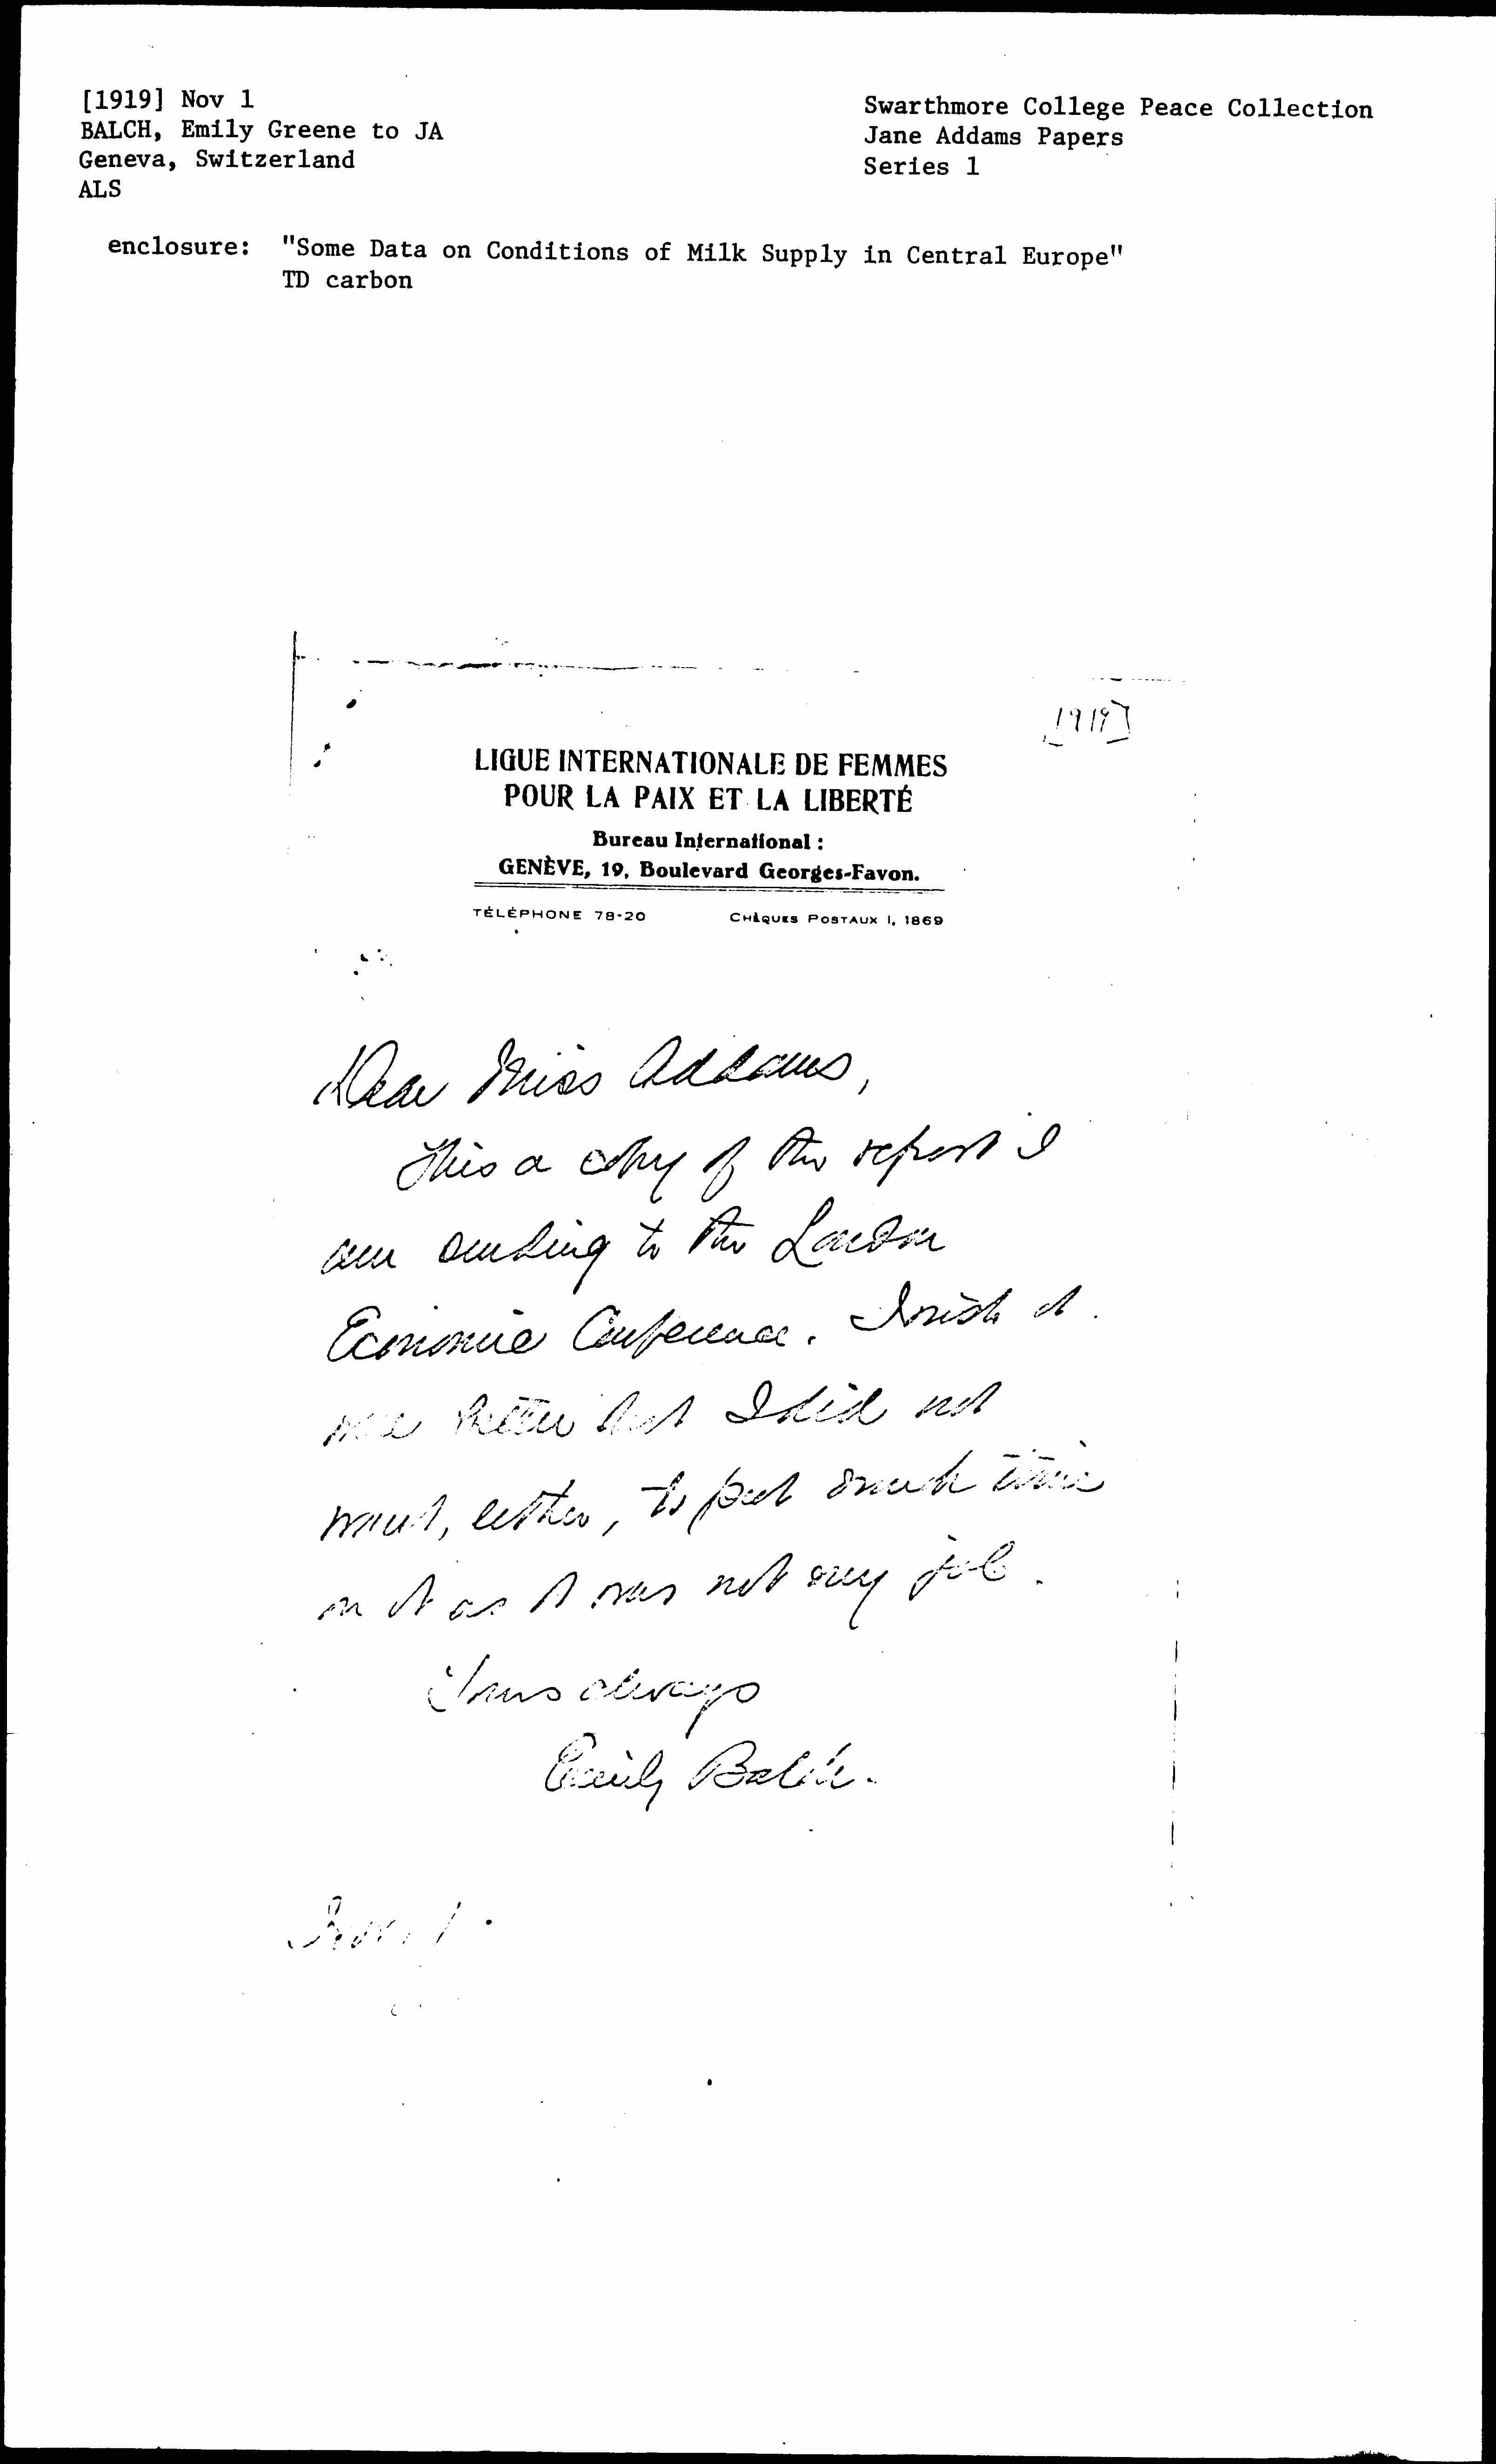 [1919] Nov 1
BALCH, Emily Greene to JA
Geneva, Switzerland
ALS
Swarthmore College Peace Collection
Jane Addams Papers
Series 1
enclosure: "Some Data on Conditions of Milk Supply in Central Europe"
TD carbon
[1919]
LIGUE INTERNATIONALE DE FEMMES
POUR LA PAIX ET LA LIBERTÉ
Bureau International :
GENÈVE, 19, Boulevard Georges-Favon.
TÉLÉPHONE 78-20 CHÈQUES POSTAUX I, 1869
Dear Miss Addams,
This a copy of the report I
am sending to the London
Economic Conference. I wish it
were better but I did not
want, either, to put much time
on it as it was not my job.
Yours always
Emily Balch.
Nov. 1.